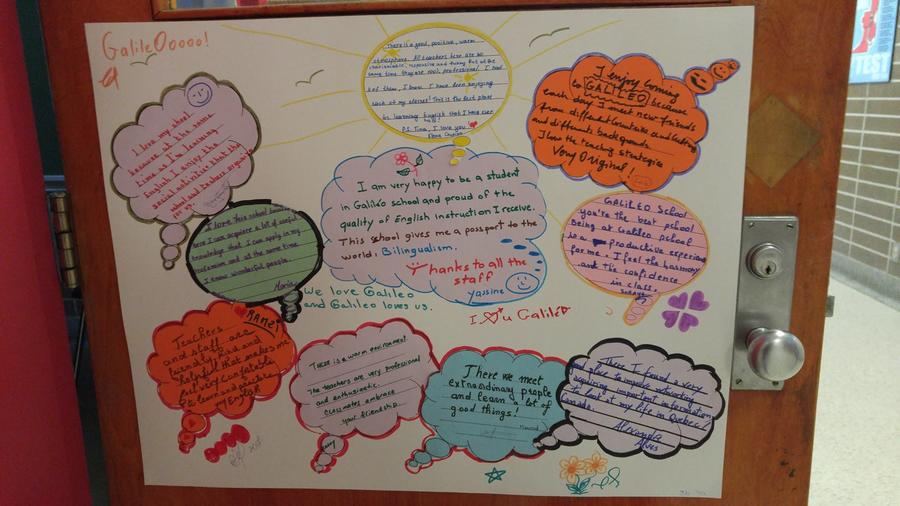 GalileOoooo!
There is a good, positive, warm
atmosphere. All teachers here are so
same time they are such professional. I had
lot of them, I know. I have been enjoying
each of my classes! This is the best place
for learning English that I have ever
had!
P.S. Tina, I love you
I enjoy coming
to GALILEO because
each day I meet new friends
from different countries and
and differents backgrounds
I love the teaching strategies
Very Original!
I love my school
because at the same
time as I'm learning
English I enjoy the
social activities that the
school and teachers organize
for us.
I am very happy to be a student
in Galileo school and proud of the
quality of English instruction I receive.
This school gives me a passport to the
world: Bilingualism.
Thanks to all the
staff
Yassine
I love this school because
here I can acquire a lot of useful
knowledge that I can apply in my
and at the same time
I know wonderful people.
Maria
GALILEO School
you're the best school
Being at Galileo school
is a productive experience
for me. I feel the harmony
and the confidence
in class.
We love Galileo
and Galileo loves us.
I u Galileo
RAME!
Teachers
and staff are
friendly, kind and
helpful that makes me
feel very comfortable
to learn and practise
my English
There is a warm environment
The teachers are very professional
and enthusiastic.
Classmates embrace
your friendship.
There we meet
extraordinary people
and learn a lot of
good things!
There I found a very
good place to improve networking
acquiring important information
to boost my life in Quebec /
Canada.
Alves